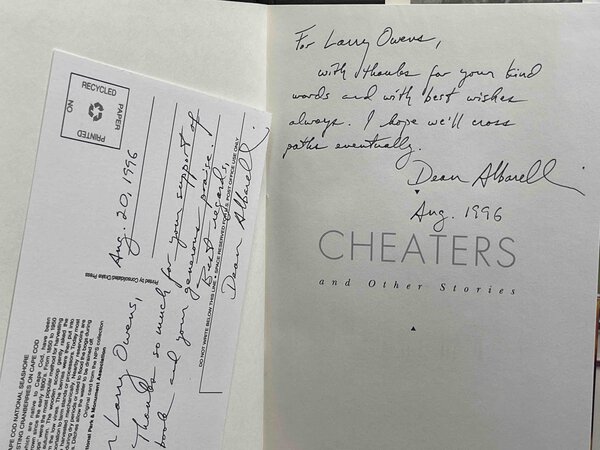 For Larry Owens,
with thanks for your kind
words and with best wishes
always. I hope we'll cross
paths eventually.
Dean Albarelli
Aug. 1996
CHEATERS
and Other Stories
RECYCLED
PAPER
PRINTED
ON
Aug. 20, 1996
Larry Owens,
Thanks so much for your support of
book and your generous praise.
Best regards,
Dean Albarelli
DO NOT WRITE BELOW THIS LINE • SPACE RESERVED FOR U.S. POST OFFICE USE ONLY
Printed by Consolidated-Drake Press
CAPE COD NATIONAL SEASHORE
STING CRANBERRIES ON CAPE COD
Original card from the NPS collection
Park & Monument Association